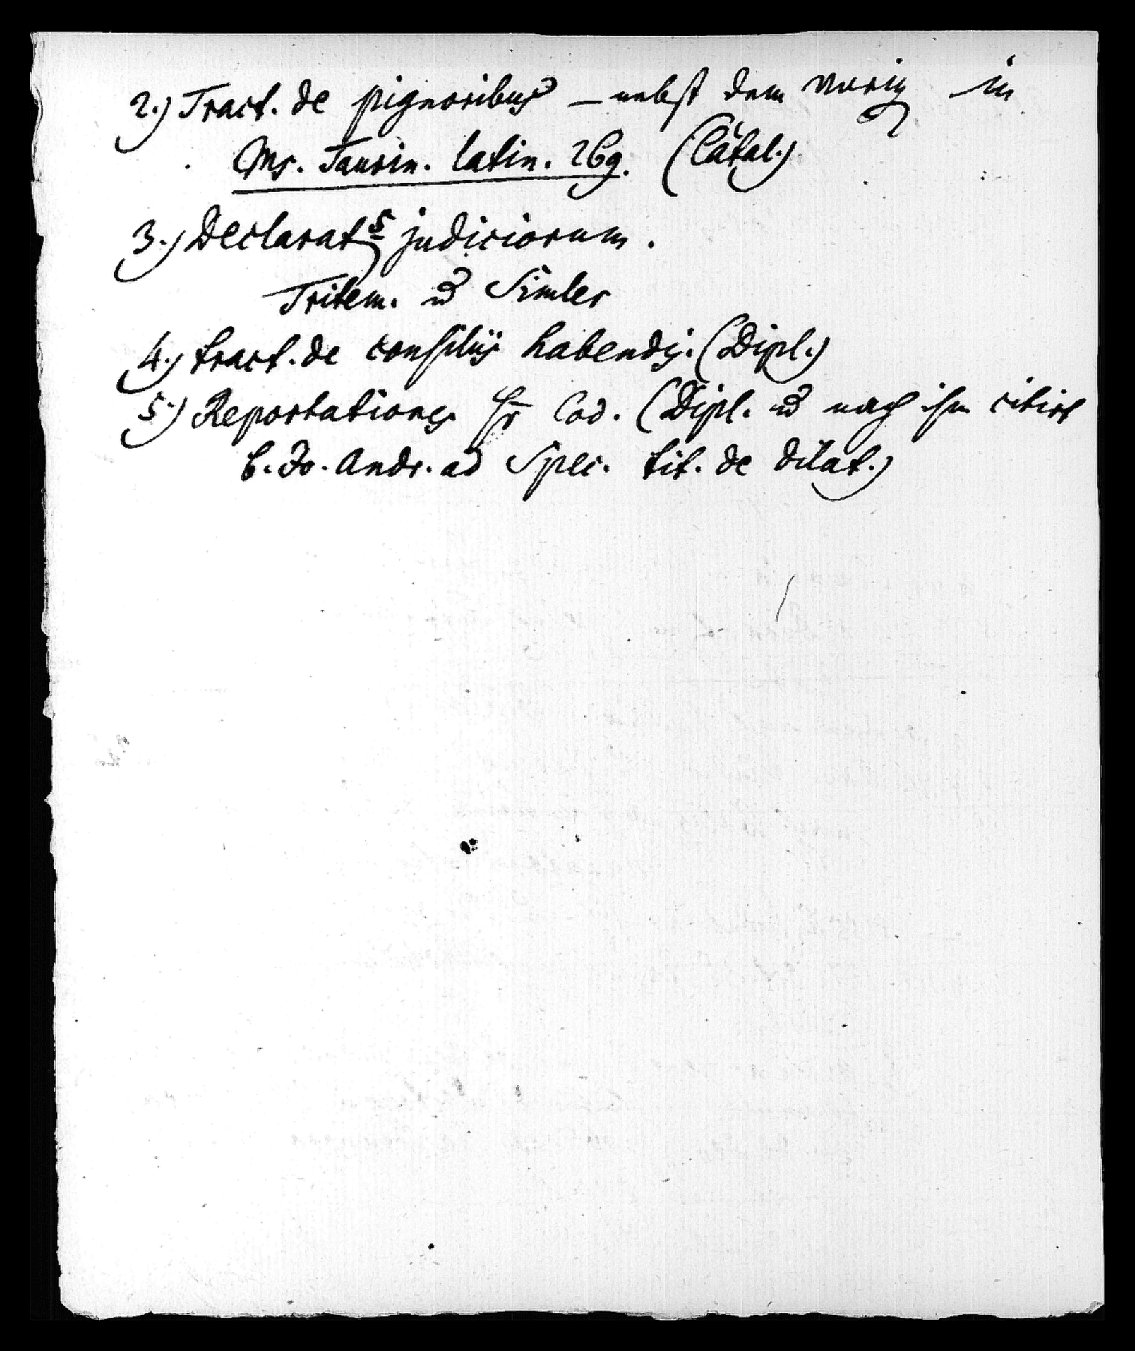 2.) Tract. de pignoribus – nebst dem vorig in
Ms. Taurin. latin. 269. (Catal.)
3.) Declarat judiciorum.
Tritem. u Simler
4.) tract. de consiliis habendis. (Dipl.)
5.) Reportationes Cod. (Dipl. u nach ihm citirt
b. Jo. Andr. ad Spec. tit. de dilat.)